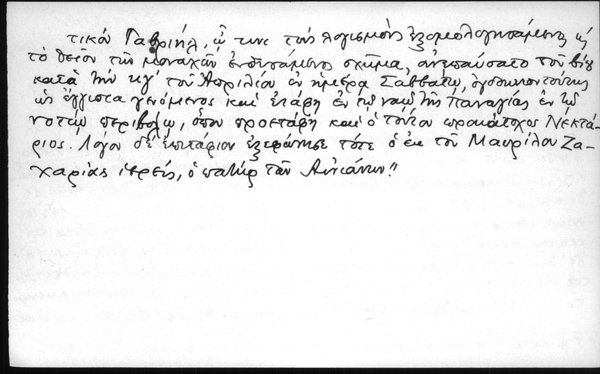 τικὸν Γαβριήλ, ᾧ τινι τοὺς λογισμοὺς ἐξομολογησάμενος καὶ
τὸ θεῖον τῶν μοναχῶν ἐνδυσάμενος σχῆμα, ἀνεπαύσατο τοῦ βίου
κατὰ τὴν κγ' τοῦ Ἀπριλίου ἐν ἡμέρᾳ Σαββάτῳ, ὀγδοηκοντούτης
ὡς ἔγγιστα γενόμενος καὶ ἐτάφη ἐν τῷ ναῷ τῆς Παναγίας ἐν τῷ
νοτίῳ περιβόλῳ, ὅπου προετάφη καὶ ὁ τούτου προκάτοχος Νεκτά-
ριος. Λόγον δὲ ἐπιτάφιον ἐξεφώνησε τότε ὁ ἐκ τοῦ Μαυρίλου Ζα-
χαρίας ἱερεύς, ὁ πατὴρ τῶν Αἰνιάνων."